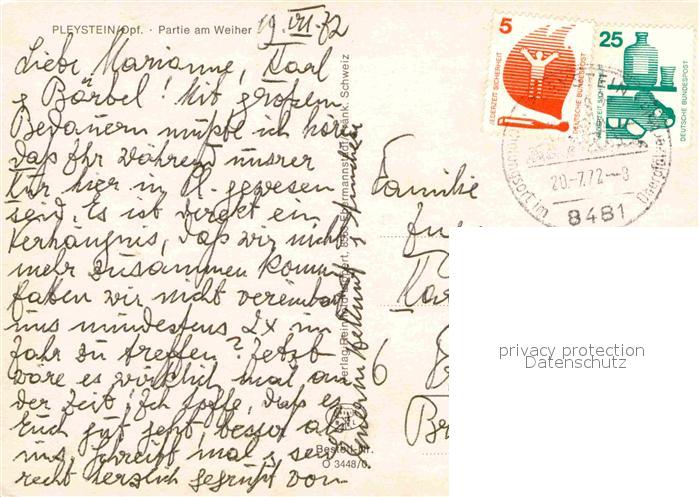 PLEYSTEIN/Opf. · Partie am Weiher
19. VII. 72
Liebe Marianne, Karl
& Bärbel! Mit großem
Bedauern mußte ich hören
daß Ihr während unsrer
Kur hier in Pl. gewesen
seid. Es ist direkt ein
Verhängnis, daß wir nicht
mehr zusammen kommen
haben wir nicht vereinbart
uns mindestens 2x im
Jahr zu treffen? Jetzt
wäre es wirklich mal an
der Zeit! Ich hoffe, daß es
Euch gut geht besser als
uns. Schreibt mal & seid
recht herzlich gegrüßt von
Verlag:
Schweiz
Bestell-Nr.
O 3448/6
Familie
6
5
JEDERZEIT SICHERHEIT
DEUTSCHE BUNDESPOST
25
JEDERZEIT SICHERHEIT
DEUTSCHE BUNDESPOST
20.-7.72-8
8481
privacy protection
Datenschutz